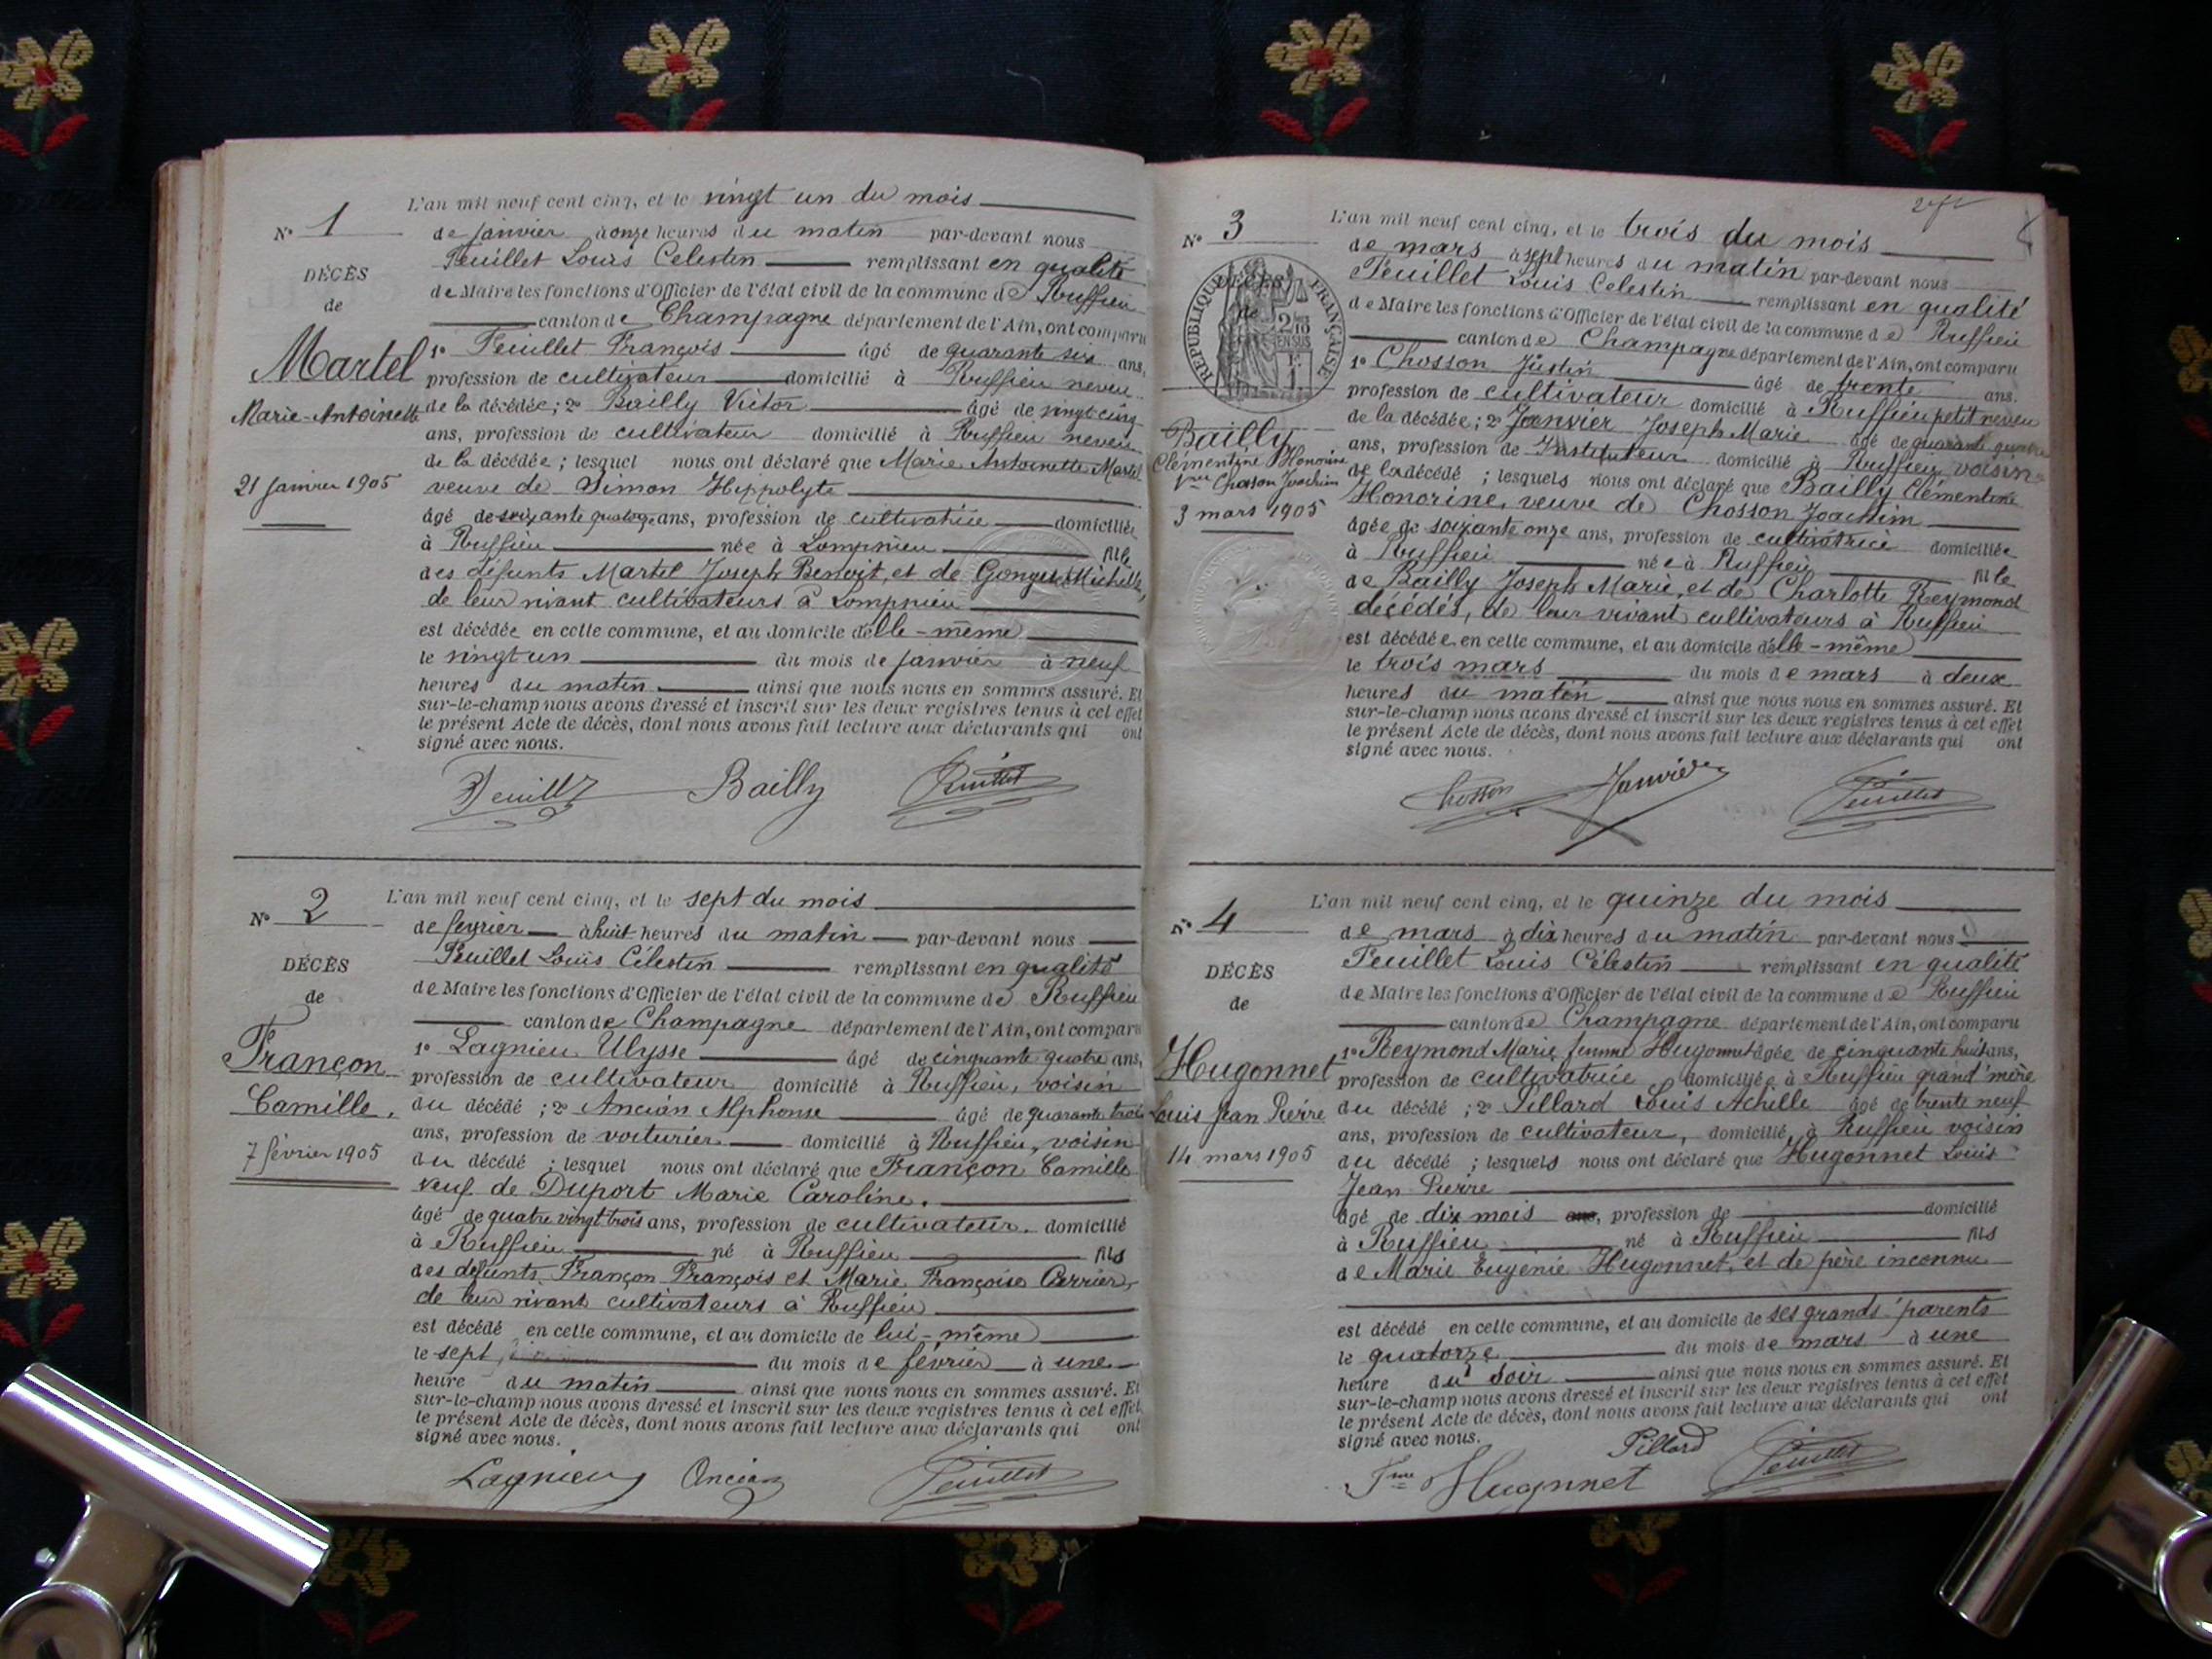 N° 1
DÉCÈS
de
Martel
Marie-Antoinette
21 janvier 1905
L'an mil neuf cent cinq, et le vingt un du mois
de janvier à onze heures du matin par-devant nous
Feuillet Louis Celestin remplissant en qualité
de Maire les fonctions d'Officier de l'état civil de la commune de Ruffieu
canton de Champagne département de l'Ain, ont comparu
1° Feuillet François âgé de quarante six ans,
profession de cultivateur domicilié à Ruffieu neveu
de la décédée; 2° Bailly Victor âgé de vingt cinq
ans, profession de cultivateur domicilié à Ruffieu neveu
de la décédée; lesquel nous ont déclaré que Marie Antoinette Martel
veuve de Simon Hippolyte
âgé de soixante quatorze ans, profession de cultivatrice domiciliée
à Ruffieu née à Lompnieu fille
des défunts Martel Joseph Benoit et de Michelle,
de leur vivant cultivateurs à Lompnieu
est décédée en cette commune, et au domicile d'elle-même
le vingt un du mois de janvier à neuf
heures du matin ainsi que nous nous en sommes assuré. Et
sur-le-champ nous avons dressé et inscrit sur les deux registres tenus à cet effet
le présent Acte de décès, dont nous avons fait lecture aux déclarants qui ont
signé avec nous.
Feuillet Bailly Feuillet
N° 2
DÉCÈS
de
Françon
Camille.
7 février 1905
L'an mil neuf cent cinq, et le sept du mois
de fevrier à huit heures du matin par-devant nous
Feuillet Louis Célestin remplissant en qualité
de Maire les fonctions d'Officier de l'état civil de la commune de Ruffieu
canton de Champagne département de l'Ain, ont comparu
1° Lagnieu Ulysse âgé de cinquante quatre ans,
profession de cultivateur domicilié à Ruffieu, voisin
du décédé; 2° Ancian Alphonse âgé de quarante trois
ans, profession de voiturier domicilié à Ruffieu, voisin
du décédé; lesquel nous ont déclaré que Françon Camille
veuf de Duport Marie Caroline.
âgé de quatre vingt trois ans, profession de cultivateur. domicilié
à Ruffieu né à Ruffieu fils
des défunts Françon François et Marie Françoise Carrier,
de leur vivant cultivateurs à Ruffieu
est décédé en cette commune, et au domicile de lui-même
le sept du mois de février à une
heure du matin ainsi que nous nous en sommes assuré. Et
sur-le-champ nous avons dressé et inscrit sur les deux registres tenus à cet effet
le présent Acte de décès, dont nous avons fait lecture aux déclarants qui ont
signé avec nous.
Lagnieu Ancian Feuillet
N° 3
DÉCÈS
de
RÉPUBLIQUE FRANÇAISE
Bailly
Clémentine Honorine
Vve Chosson Joachim
3 mars 1905
L'an mil neuf cent cinq, et le trois du mois
de mars à sept heures du matin par-devant nous
Feuillet Louis Celestin remplissant en qualité
de Maire les fonctions d'Officier de l'état civil de la commune de Ruffieu
canton de Champagne département de l'Ain, ont comparu
1° Chosson Justin âgé de trente ans.
profession de cultivateur domicilié à Ruffieu petit neveu
de la décédée; 2° Janvier Joseph Marie âgé de quarante quatre
ans, profession de Instituteur domicilié à Ruffieu voisin
de la décédé; lesquels nous ont déclaré que Bailly Clémentine
Honorine, veuve de Chosson Joachim
âgée de soixante onze ans, profession de cultivatrice domiciliée
à Ruffieu née à Ruffieu fille
de Bailly Joseph Marie, et de Charlotte Reymond
décédés, de leur vivant cultivateurs à Ruffieu
est décédée en cette commune, et au domicile d'elle-même
le trois mars du mois de mars à deux
heures du matin ainsi que nous nous en sommes assuré. Et
sur-le-champ nous avons dressé et inscrit sur les deux registres tenus à cet effet
le présent Acte de décès, dont nous avons fait lecture aux déclarants qui ont
signé avec nous.
Chosson Janvier Feuillet
N° 4
DÉCÈS
de
Hugonnet
Louis Jean Pierre
14 mars 1905
L'an mil neuf cent cinq, et le quinze du mois
de mars à dix heures du matin par-devant nous
Feuillet Louis Célestin remplissant en qualité
de Maire les fonctions d'Officier de l'état civil de la commune de Ruffieu
canton de Champagne département de l'Ain, ont comparu
1° Reymond Marie femme Hugonnet âgée de cinquante huit ans,
profession de cultivatrice domiciliée à Ruffieu grand'mère
du décédé; 2° Pillard Louis Achille âgé de trente neuf
ans, profession de cultivateur, domicilié à Ruffieu voisin
du décédé; lesquels nous ont déclaré que Hugonnet Louis
Jean Pierre
âgé de dix mois ans, profession de domicilié
à Ruffieu né à Ruffieu fils
de Marie Eugénie Hugonnet, et de père inconnu
est décédé en cette commune, et au domicile de ses grands'parents
le quatorze du mois de mars à une
heure du soir ainsi que nous nous en sommes assuré. Et
sur-le-champ nous avons dressé et inscrit sur les deux registres tenus à cet effet
le présent Acte de décès, dont nous avons fait lecture aux déclarants qui ont
signé avec nous.
Pillard
Fme Hugonnet Feuillet